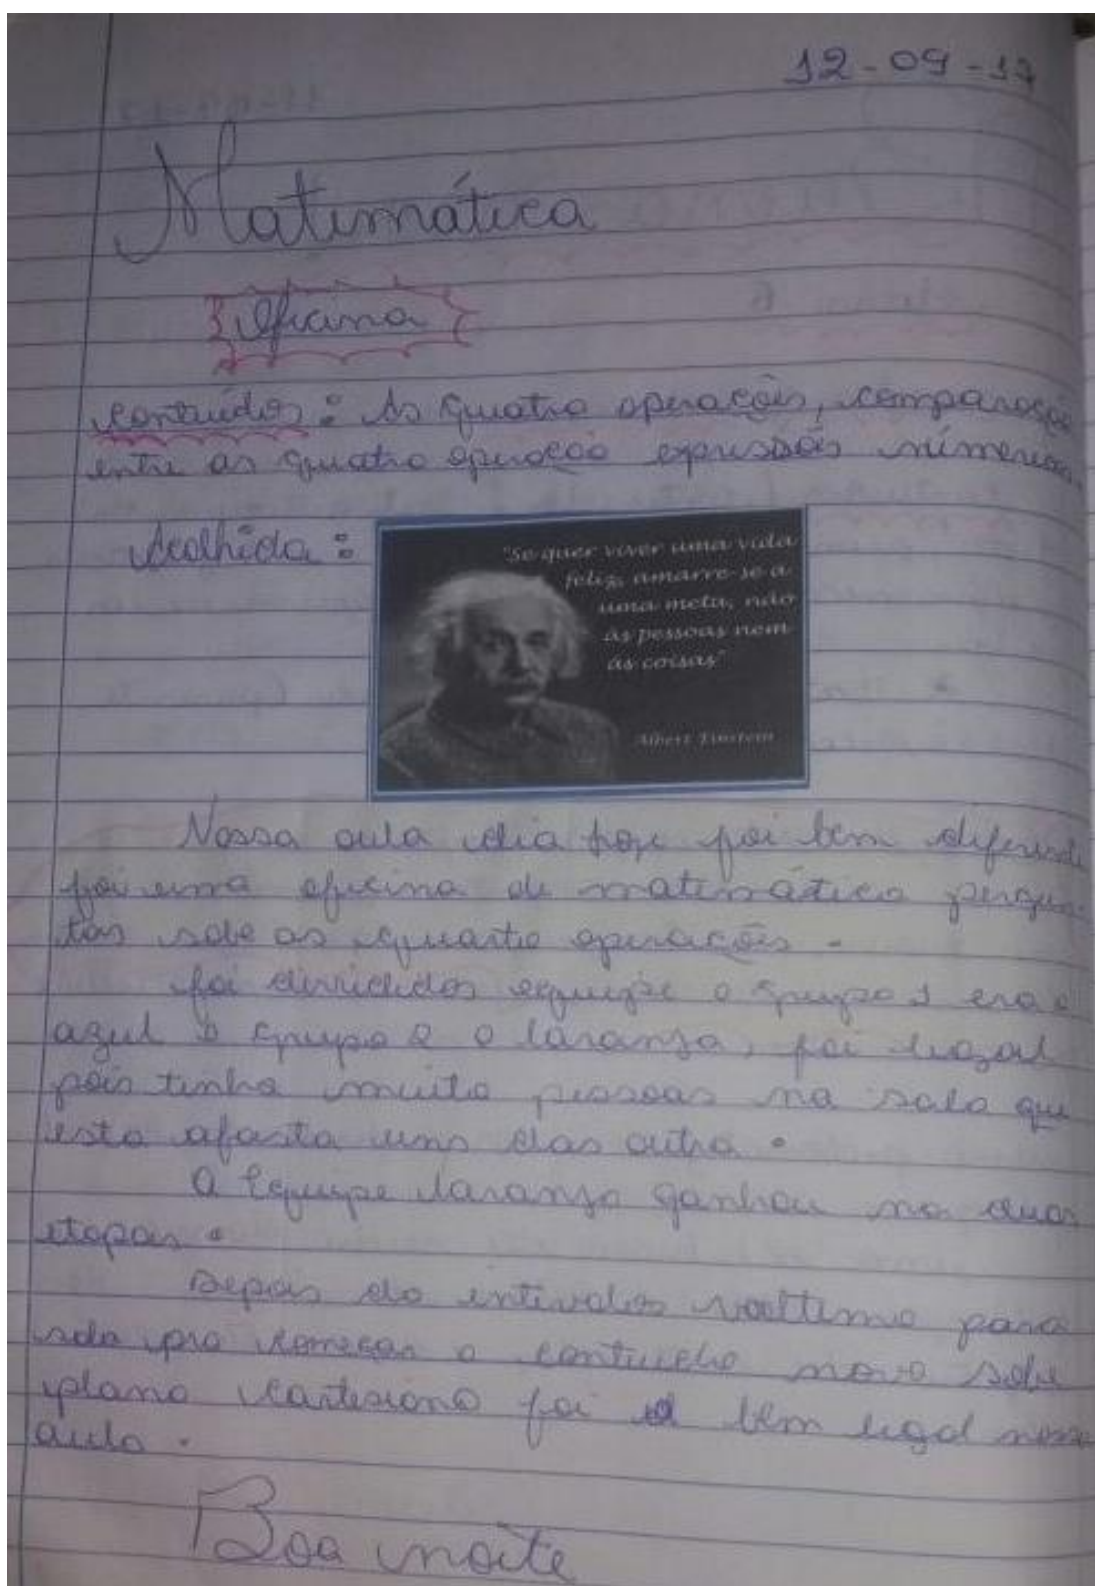 12-09-17
Matimática
Oficina
Contuídos: As quatro operações, comparação
entre as quatro operação expressões númericas
Acolhida:
"Se quer viver uma vida
feliz, amarre-se a
uma meta, não
às pessoas nem
às coisas"
Albert Einstein
Nossa aula dia hoje foi bem diferende
foi uma oficina de matemática pergun-
tas sobe as quarto operações.
foi divididos equipe o grupo 1 era o
azul o grupo 2 o laranja, foi legal
pois tinha muito pessoas na sala que
esta afasta uns das outra.
A Equipe laranja ganhou na duas
etapas.
Depois do intevalos voltemo para
sala pra começar o contuedo novo sobe
plano cartesiano foi bem legal nossa
aula.
Boa noite